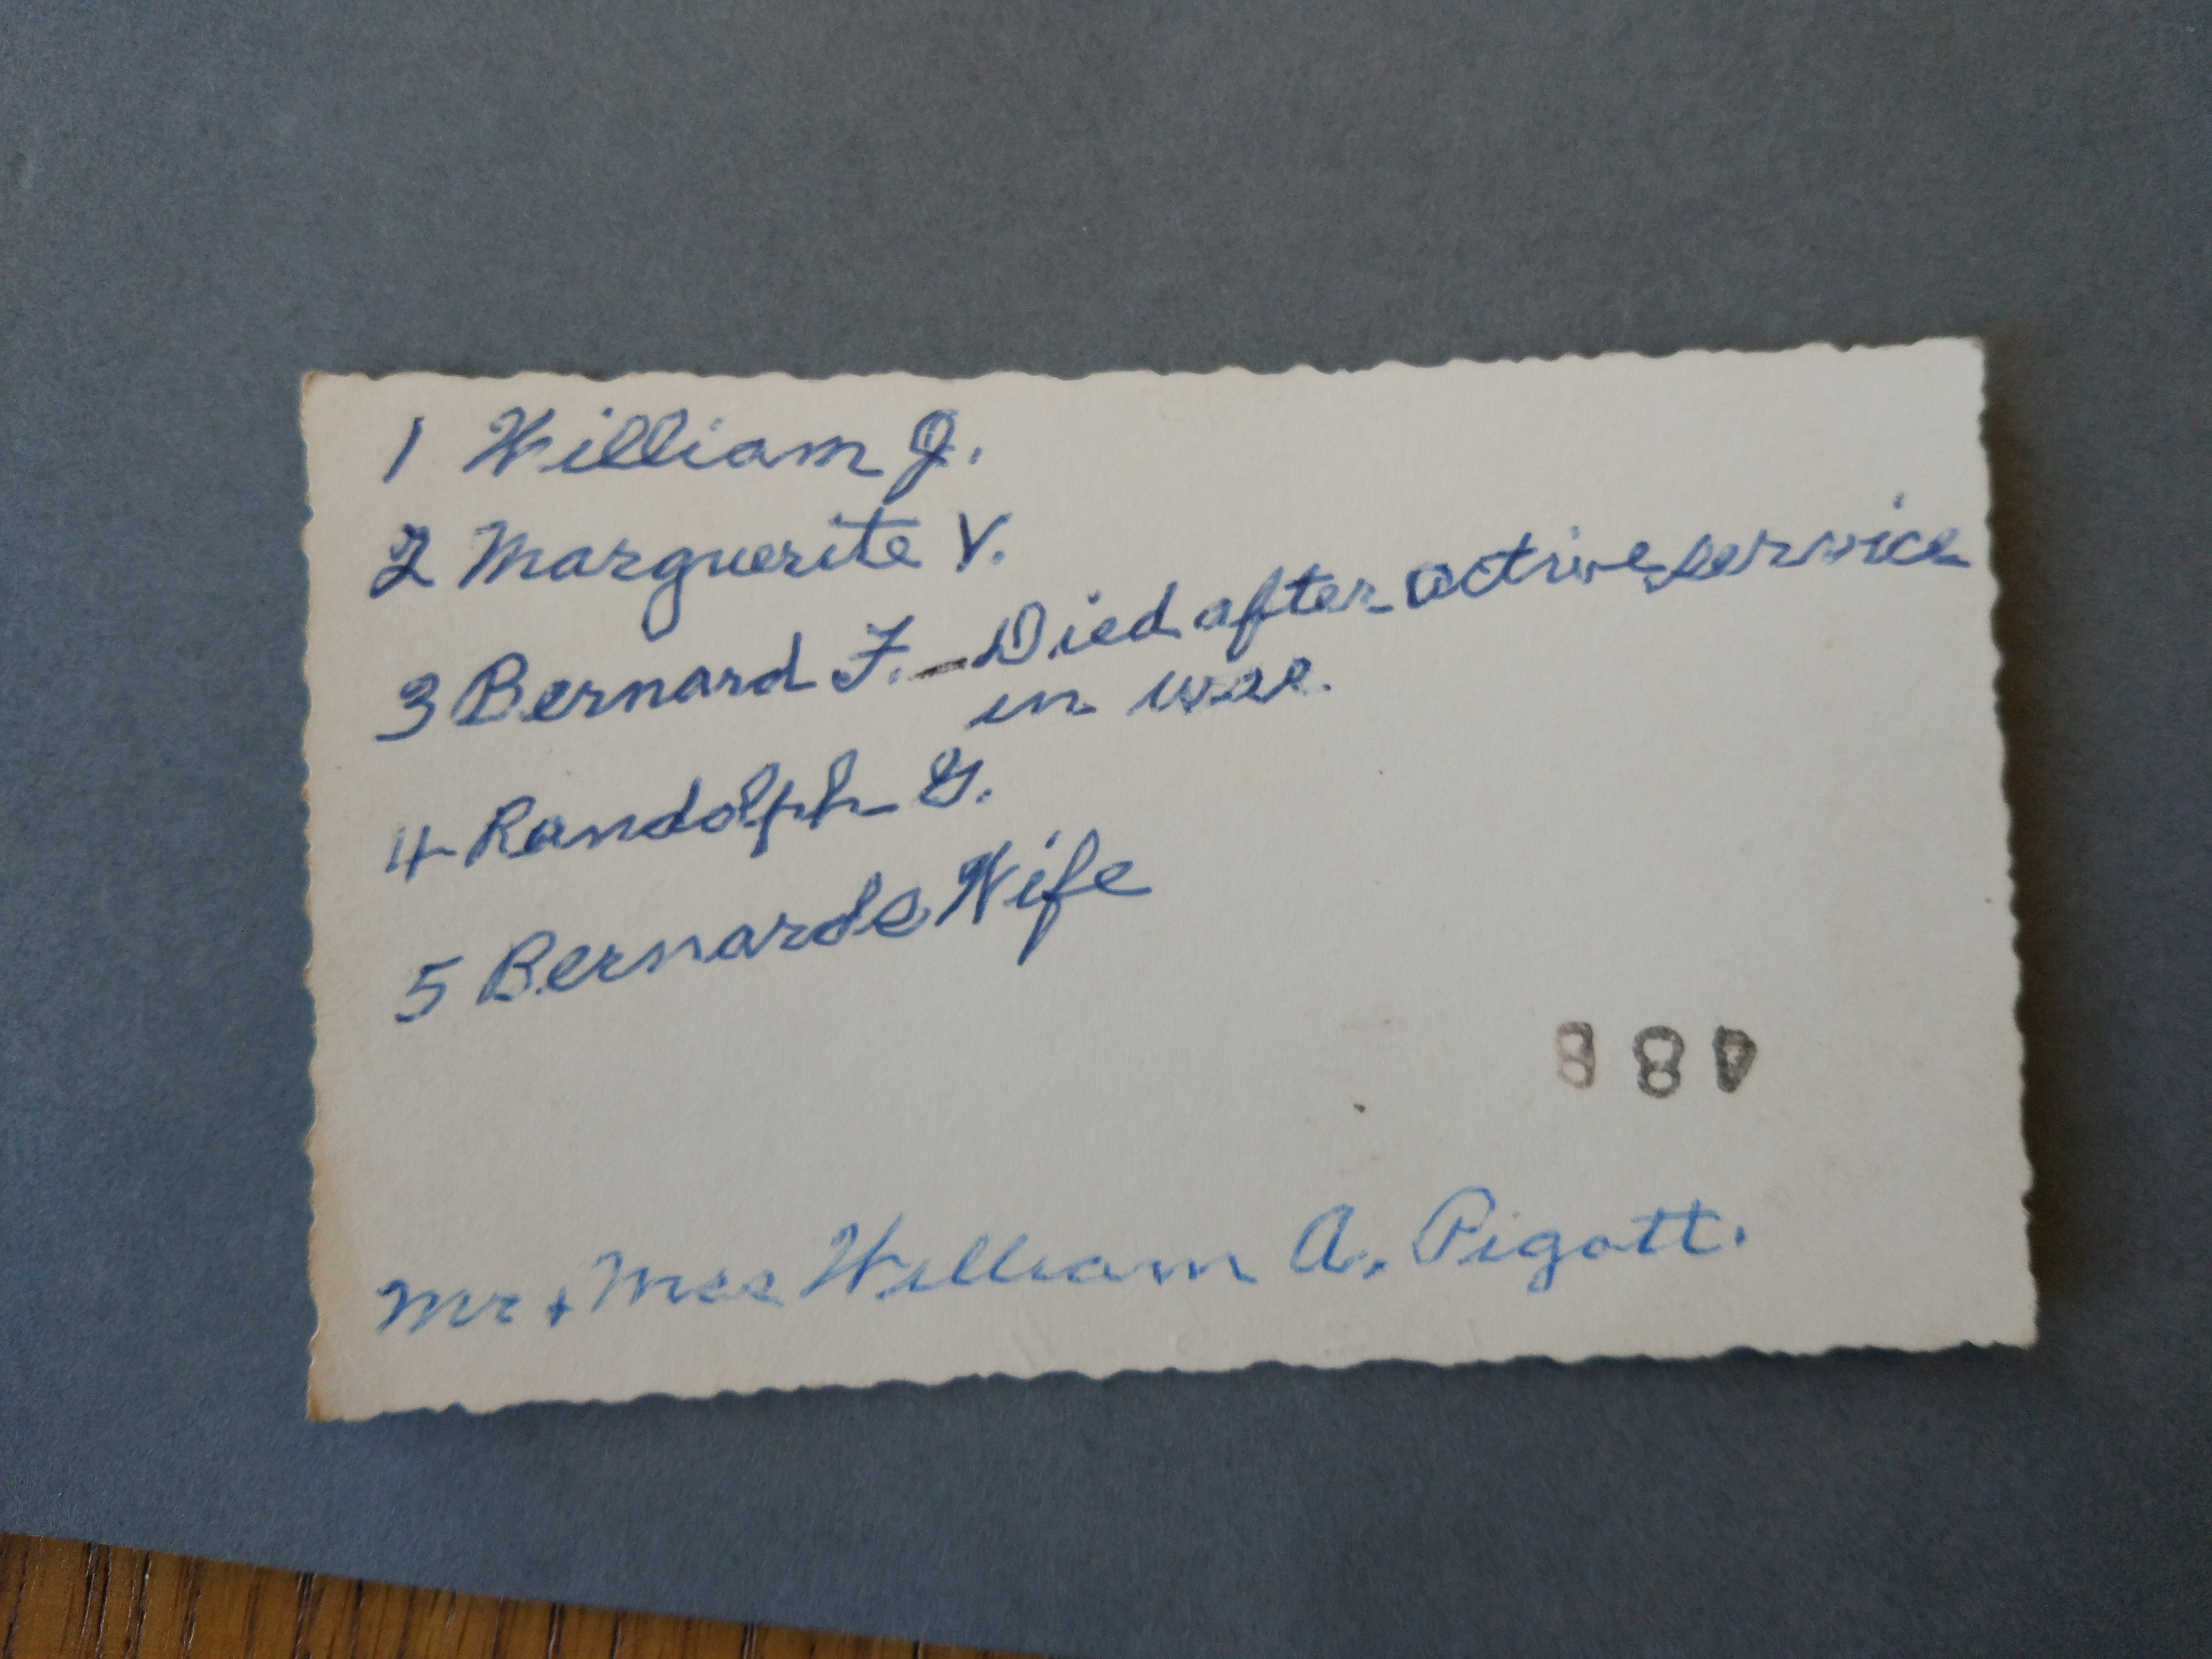 1 William J.
2 Marguerite V.
3 Bernard F. – Died after active service
in war.
4 Randolph G.
5 Bernards Wife
Mr + Mrs William A. Pigott.